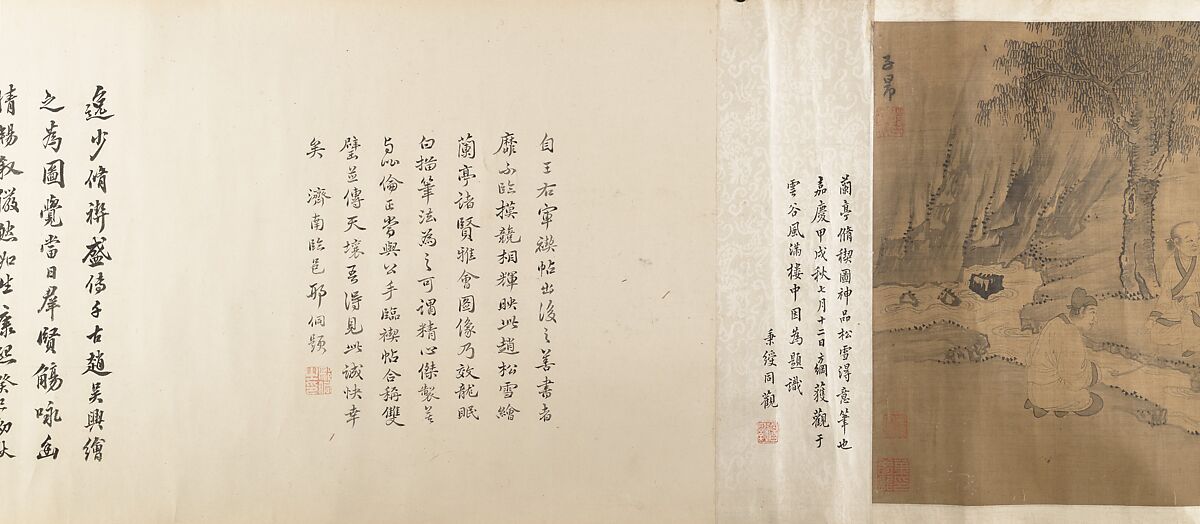 子昂
蘭亭脩稧圖神品松雪得意筆也
嘉慶甲戌秋七月十二日 獲觀于
雲谷風滿樓中因為題識
秉綬同觀
自王右軍禊帖出後之善書者
靡不臨摸競相輝映此趙松雪繪
蘭亭諸賢雅會圖像乃效龍眠
白描筆法為之可謂精心傑製若
與此倫正當與公手臨禊帖合稱雙
璧並傳天壤吾得見此誠快幸
矣 濟南臨邑邢侗題
逸少脩禊盛傳千古趙吳興繪
之為圖覺當日羣賢觴咏幽
情暢敘儼然如生康熙癸巳初秋